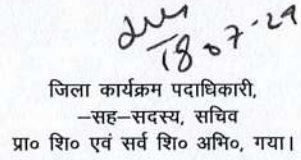 18-07-24
जिला कार्यक्रम पदाधिकारी,
–सह–सदस्य, सचिव
प्रा० शि० एवं सर्व शि० अभि०, गया।